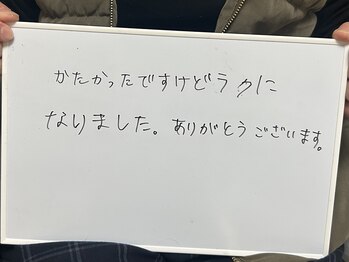 かたかったですけどラクに
なりました。ありがとうございます。